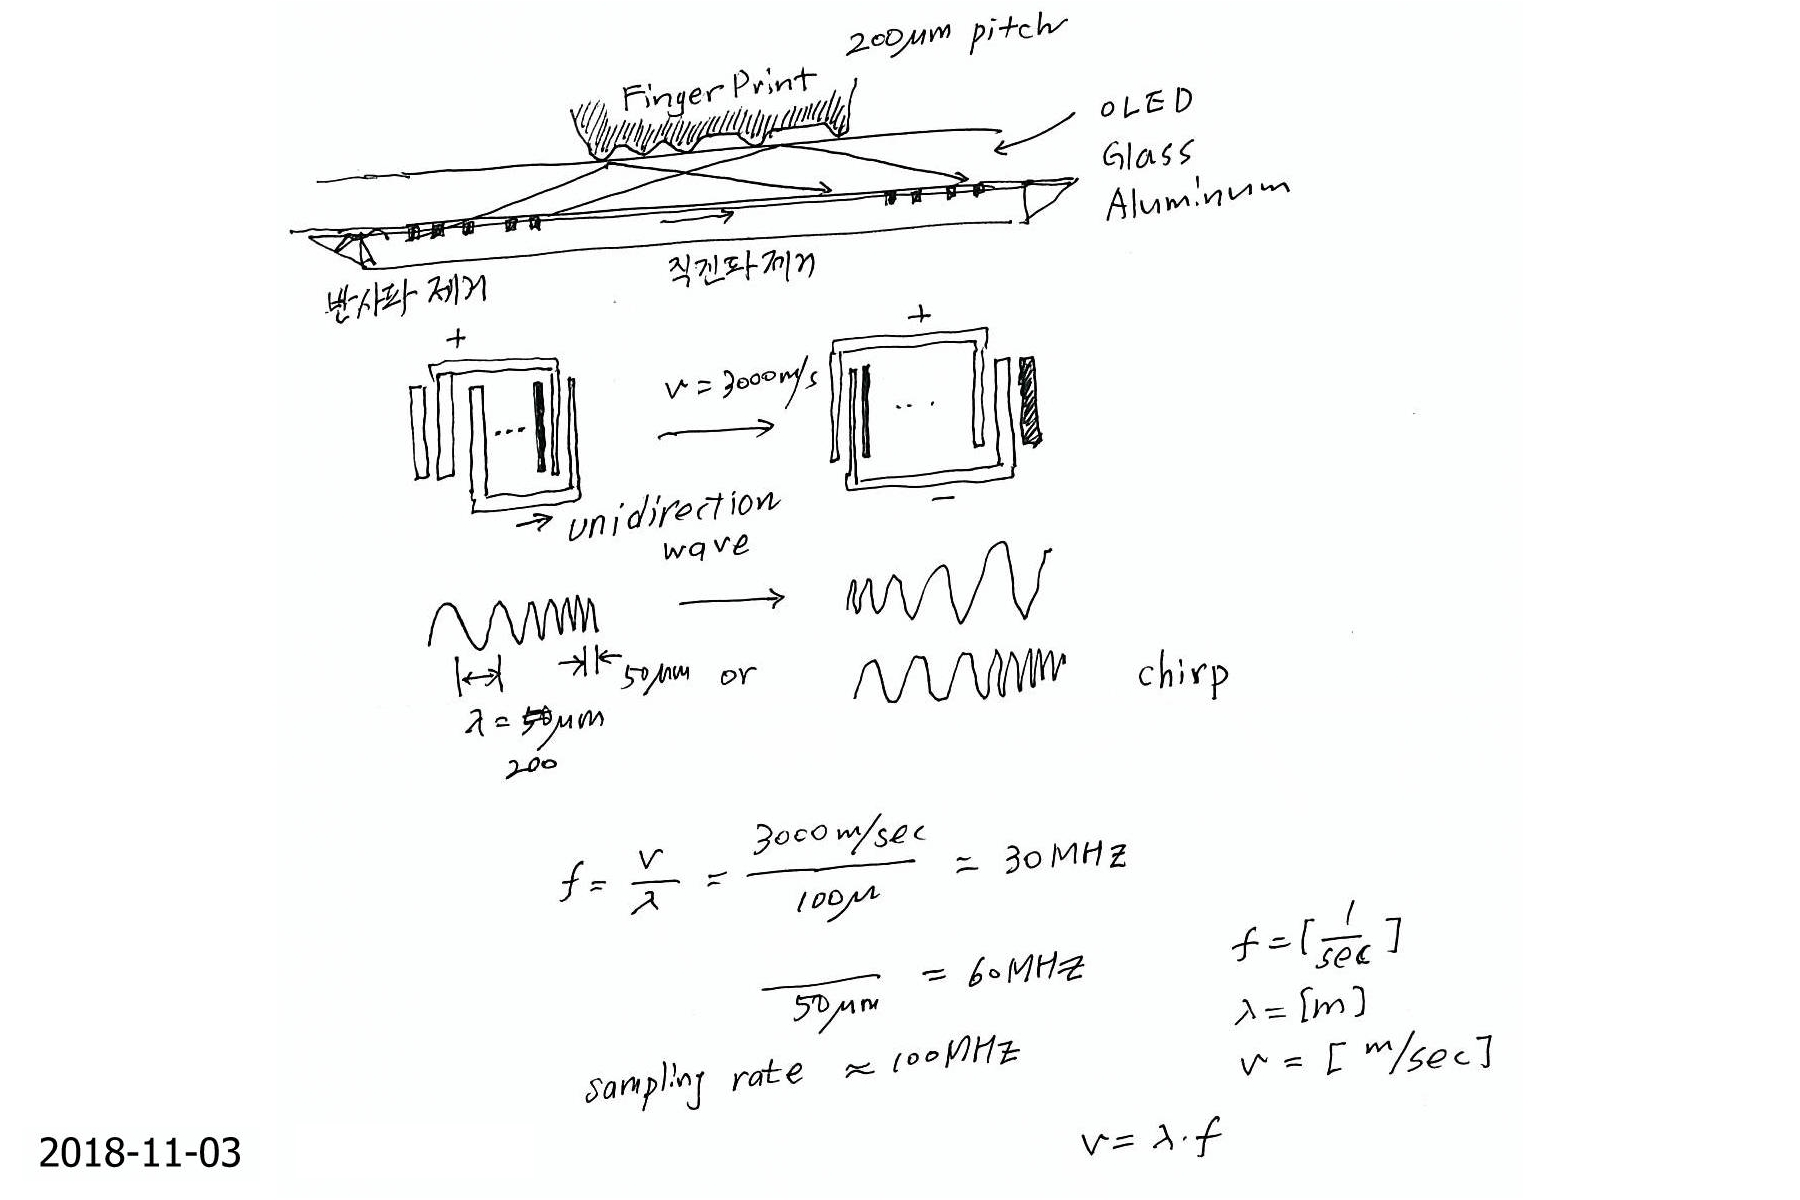 200μm pitch
Finger Print
OLED
Glass
Aluminum
반사파 제거
직진파 제거
+
+
v = 3000m/s
-
→ unidirection
wave
50μm or
chirp
λ = 50μm
200
f = v/λ = 3000m/sec / 100μ = 30MHZ
/ 50μm = 60MHZ
sampling rate ≈ 100MHZ
f = [1/sec]
λ = [m]
v = [m/sec]
v = λ·f
2018-11-03